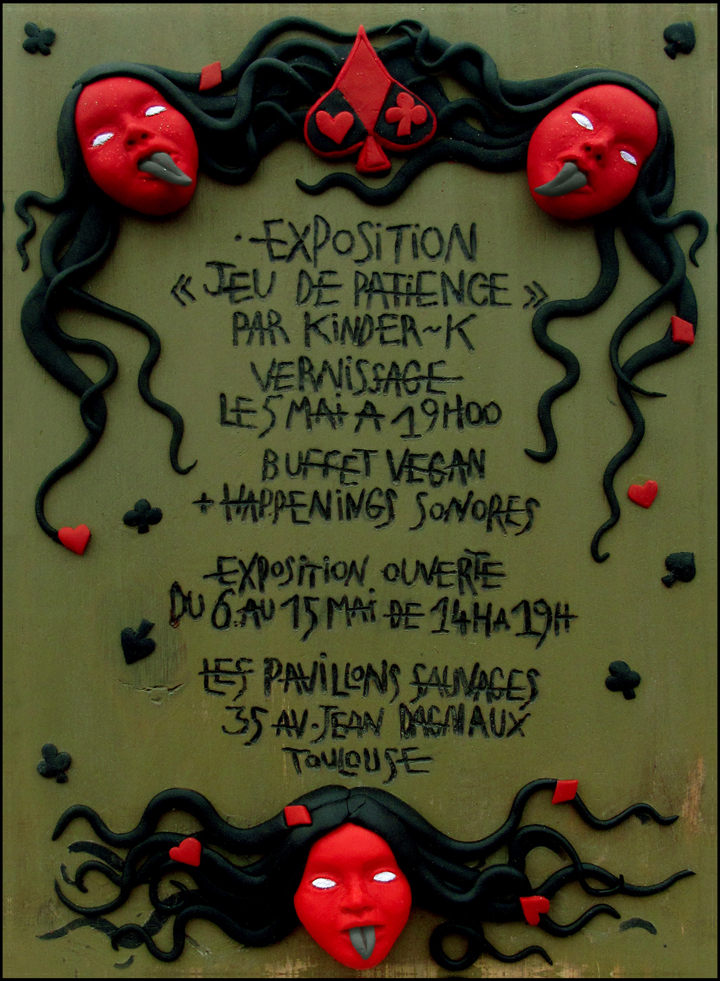 ·EXPOSITION
« JEU DE PATIENCE »
PAR KINDER~K
VERNISSAGE
LE 5 MAI A 19H00
BUFFET VEGAN
+ HAPPENINGS SONORES
EXPOSITION OUVERTE
DU 6 AU 15 MAI DE 14H A 19H
LES PAVILLONS SAUVAGES
35 AV. JEAN DAGNAUX
TOULOUSE